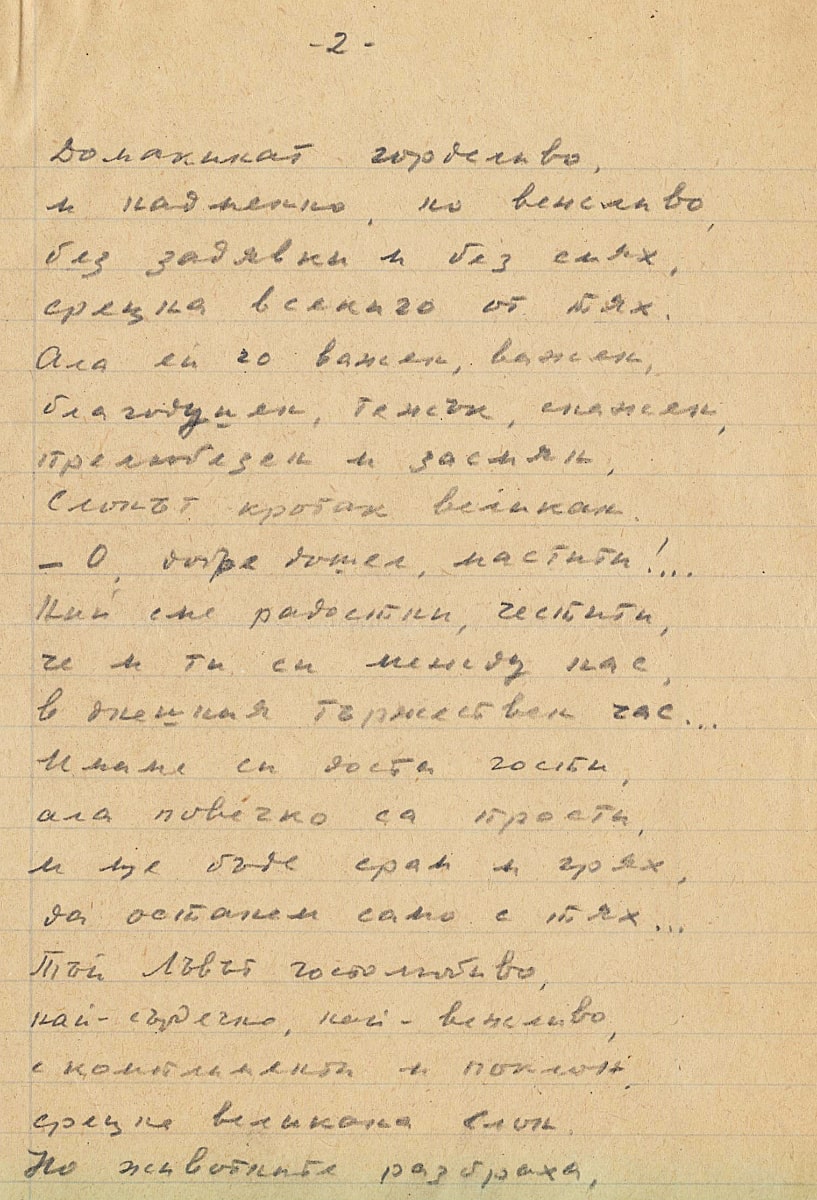 -2-
Домакинът горделиво,
и надменно, но вежливо,
без задявки и без смях,
среща всекиго от тях.
Ала ей го важен, важен,
благодушен, тежък, снажен,
прелюбезен и засмян,
Слонът кротък великан.
– О, добре дошел, мастити!...
Ний сме радостни, честити,
че и ти си между нас,
в днешния тържествен час...
Имаме си доста гости,
ала повечко са прости,
и ще бъде срам и грях,
да останем само с тях...
Тъй Лъвът гостолюбиво,
най-сърдечно, най-вежливо,
с комплименти и поклон,
срещна великана Слон.
Но животните разбраха,